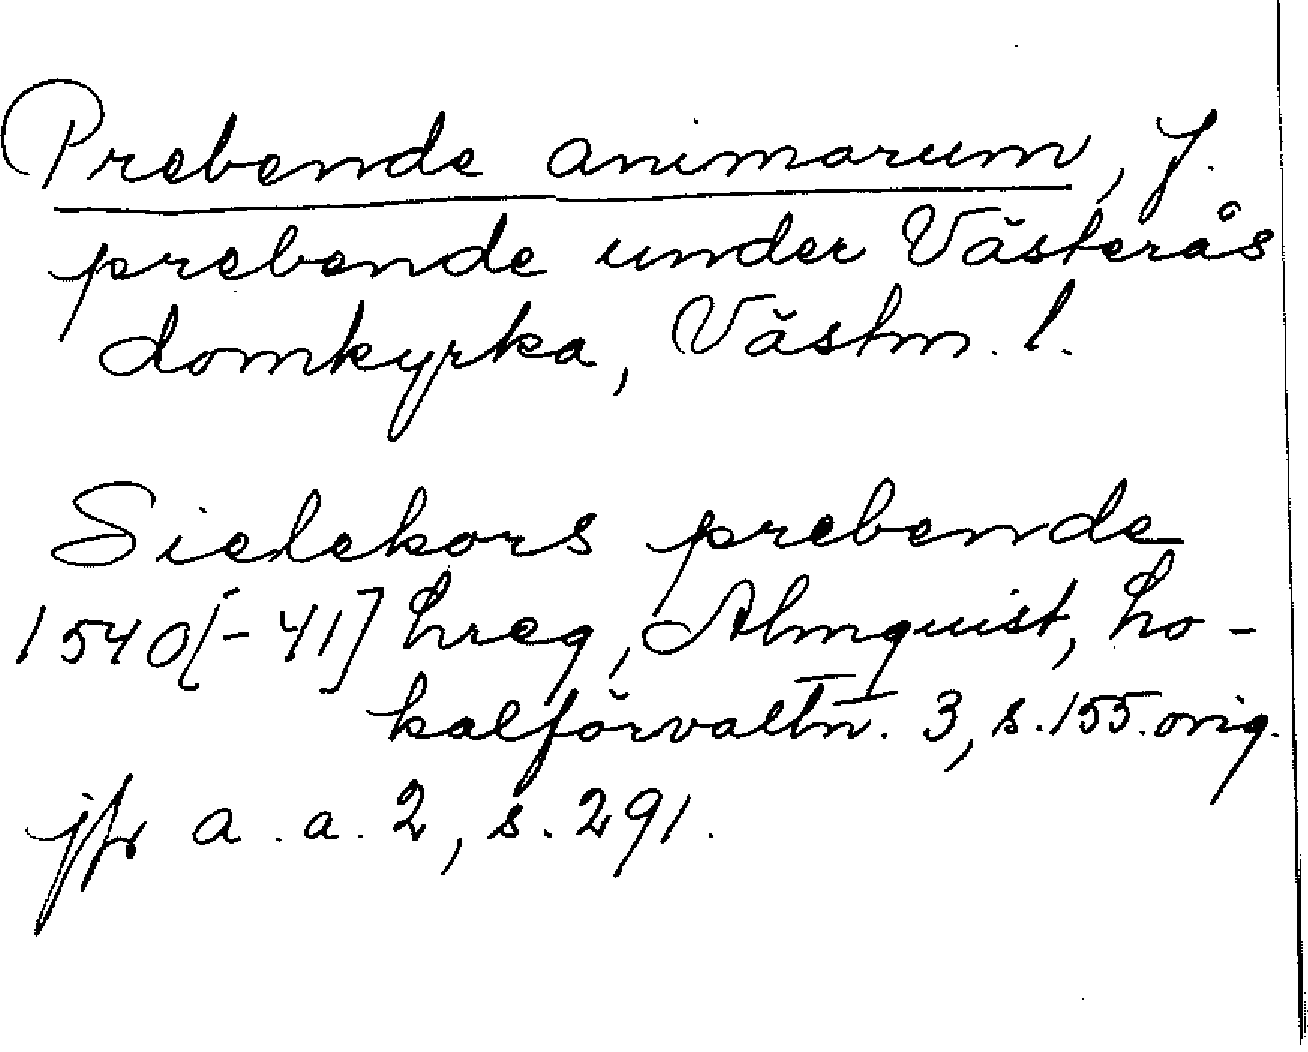 Prebende animarum, f.
prebende under Västerås
domkyrka, Västm. l.
Sielekors prebende
1540[-41] hreg, Almquist, Lo-
kalförvaltn. 3, s. 155. orig.
jfr a. a. 2, s. 291.